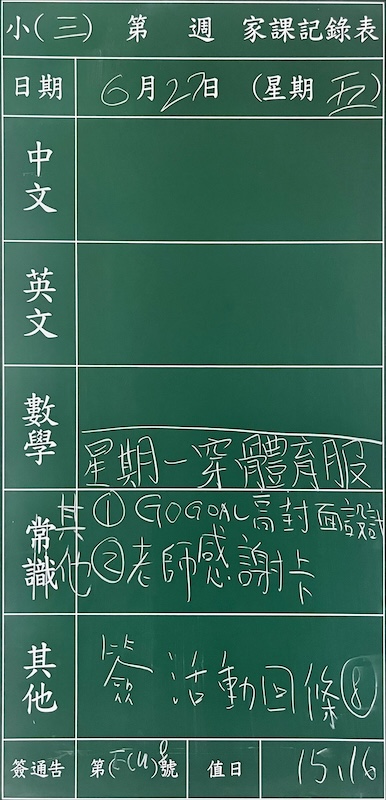 小(三) 第 週 家課記錄表
日期 6月27日 (星期五)
中文
英文
數學
星期一穿體育服
常識 其他 ① GOGOAL高封面設計
②老師感謝卡
其他 簽活動回條⑧
簽通告 第 號 值日 15,16